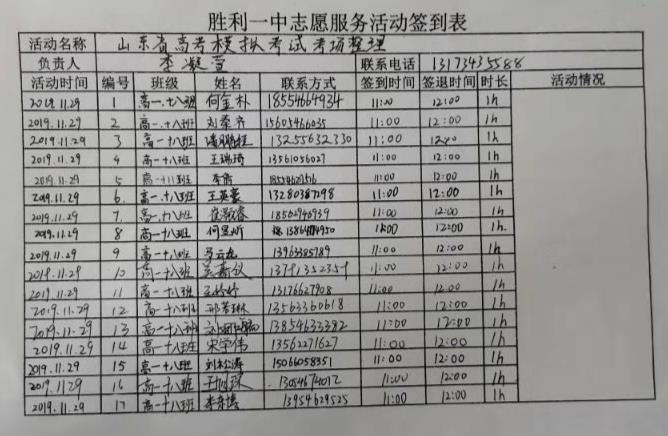 胜利一中志愿服务活动签到表
活动名称 山东省高考模拟考试考项整理
负责人 李凝萱 联系电话 13173435588
活动时间 编号 班级 姓名 联系方式 签到时间 签退时间 时长 活动情况
2019.11.29 1 高一.十八班 何金朴 18554664934 11:00 12:00 1h
2019.11.29 2 高一.十八班 15605466035 11:00 12:00 1h
2019.11.29 3 高一十八班 13255632330 11:00 12:00 1h
2019.11.29 4 高一十八班 王瑞琦 13561056027 11:00 12:00 1h
2019.11.29 5 高一十八班 11:00 12:00 1h
2019.11.29 6 高一.十八班 王英豪 13280387298 11:00 12:00 1h
2019.11.29 7 高一.十八班 18562946939 11:00 12:00 1h
2019.11.29 8 高一十八班 11:00 12:00 1h
2019.11.29 9 高一十八班 13963385789 11:00 12:00 1h
2019.11.29 10 高一十八班 11:00 12:00 1h
2019.11.29 11 高一十八班 13176627908 11:00 12:00 1h
2019.11.29 12 高一十八班 13563360618 11:00 12:00 1h
2019.11.29 13 高一十八班 13854633382 11:00 12:00 1h
2019.11.29 14 高一十八班 宋学伟 13562271627 11:00 12:00 1h
2019.11.29 15 高一十八班 刘松涛 15066058351 11:00 12:00 1h
2019.11.29 16 高一十八班 11:00 12:00 1h
2019.11.29 17 高一十八班 13954629525 11:00 12:00 1h